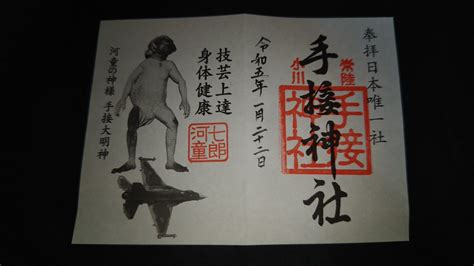 奉拝日本唯一社
常陸
小川
手接
神社
手接神社
令和五年一月二十二日
技芸上達
身体健康
七郎
河童
河童の神様 手接大明神